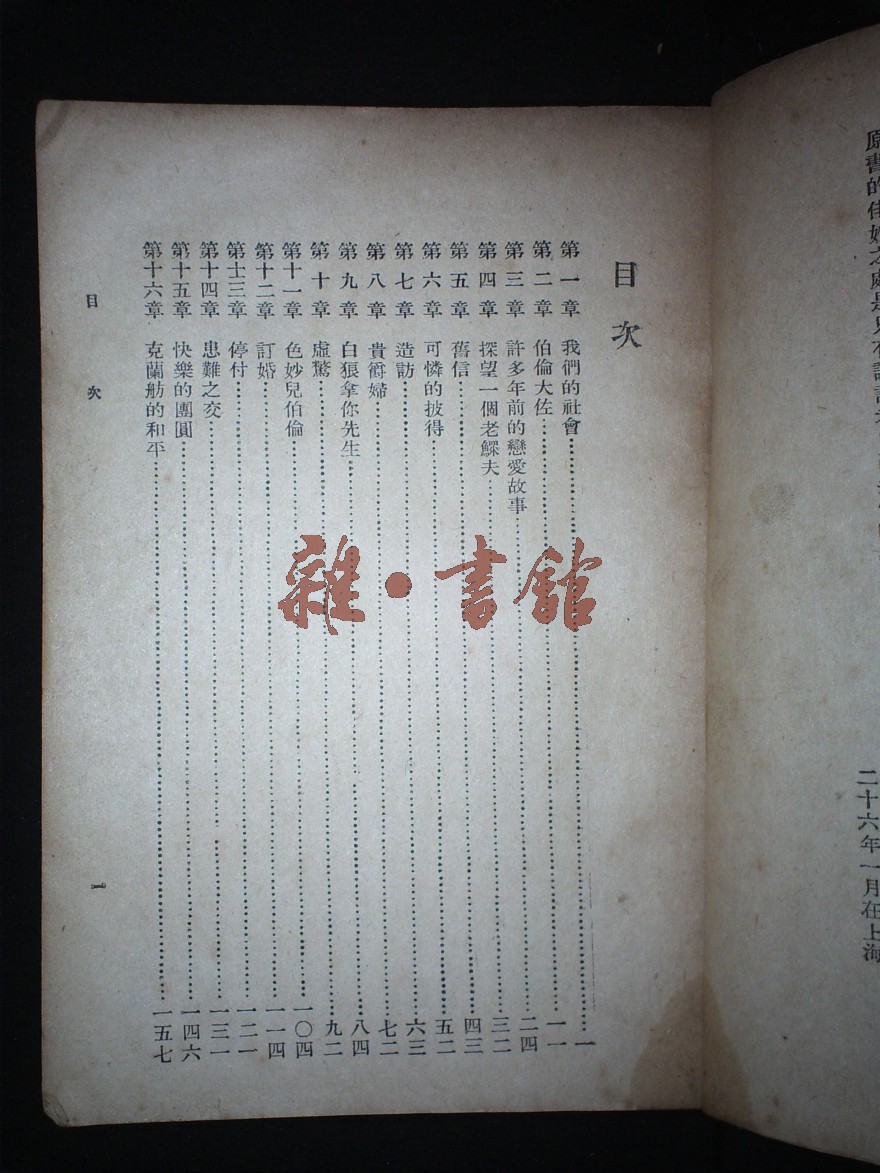 原書的佳妙之處是
二十六年一月在上海
目次
第一章 我們的社會 一
第二章 伯倫大佐 一一
第三章 許多年前的戀愛故事 二四
第四章 探望一個老鰥夫 三二
第五章 舊信 四三
第六章 可憐的披得 五二
第七章 造訪 六三
第八章 貴爵婦 七二
第九章 白狼拿你先生 八四
第十章 虛驚 九二
第十一章 色妙兒伯倫 一〇四
第十二章 訂婚 一一四
第十三章 停付 一二一
第十四章 患難之交 一三一
第十五章 快樂的團圓 一四六
第十六章 克蘭舫的和平 一五七
目次 一
雜·書館